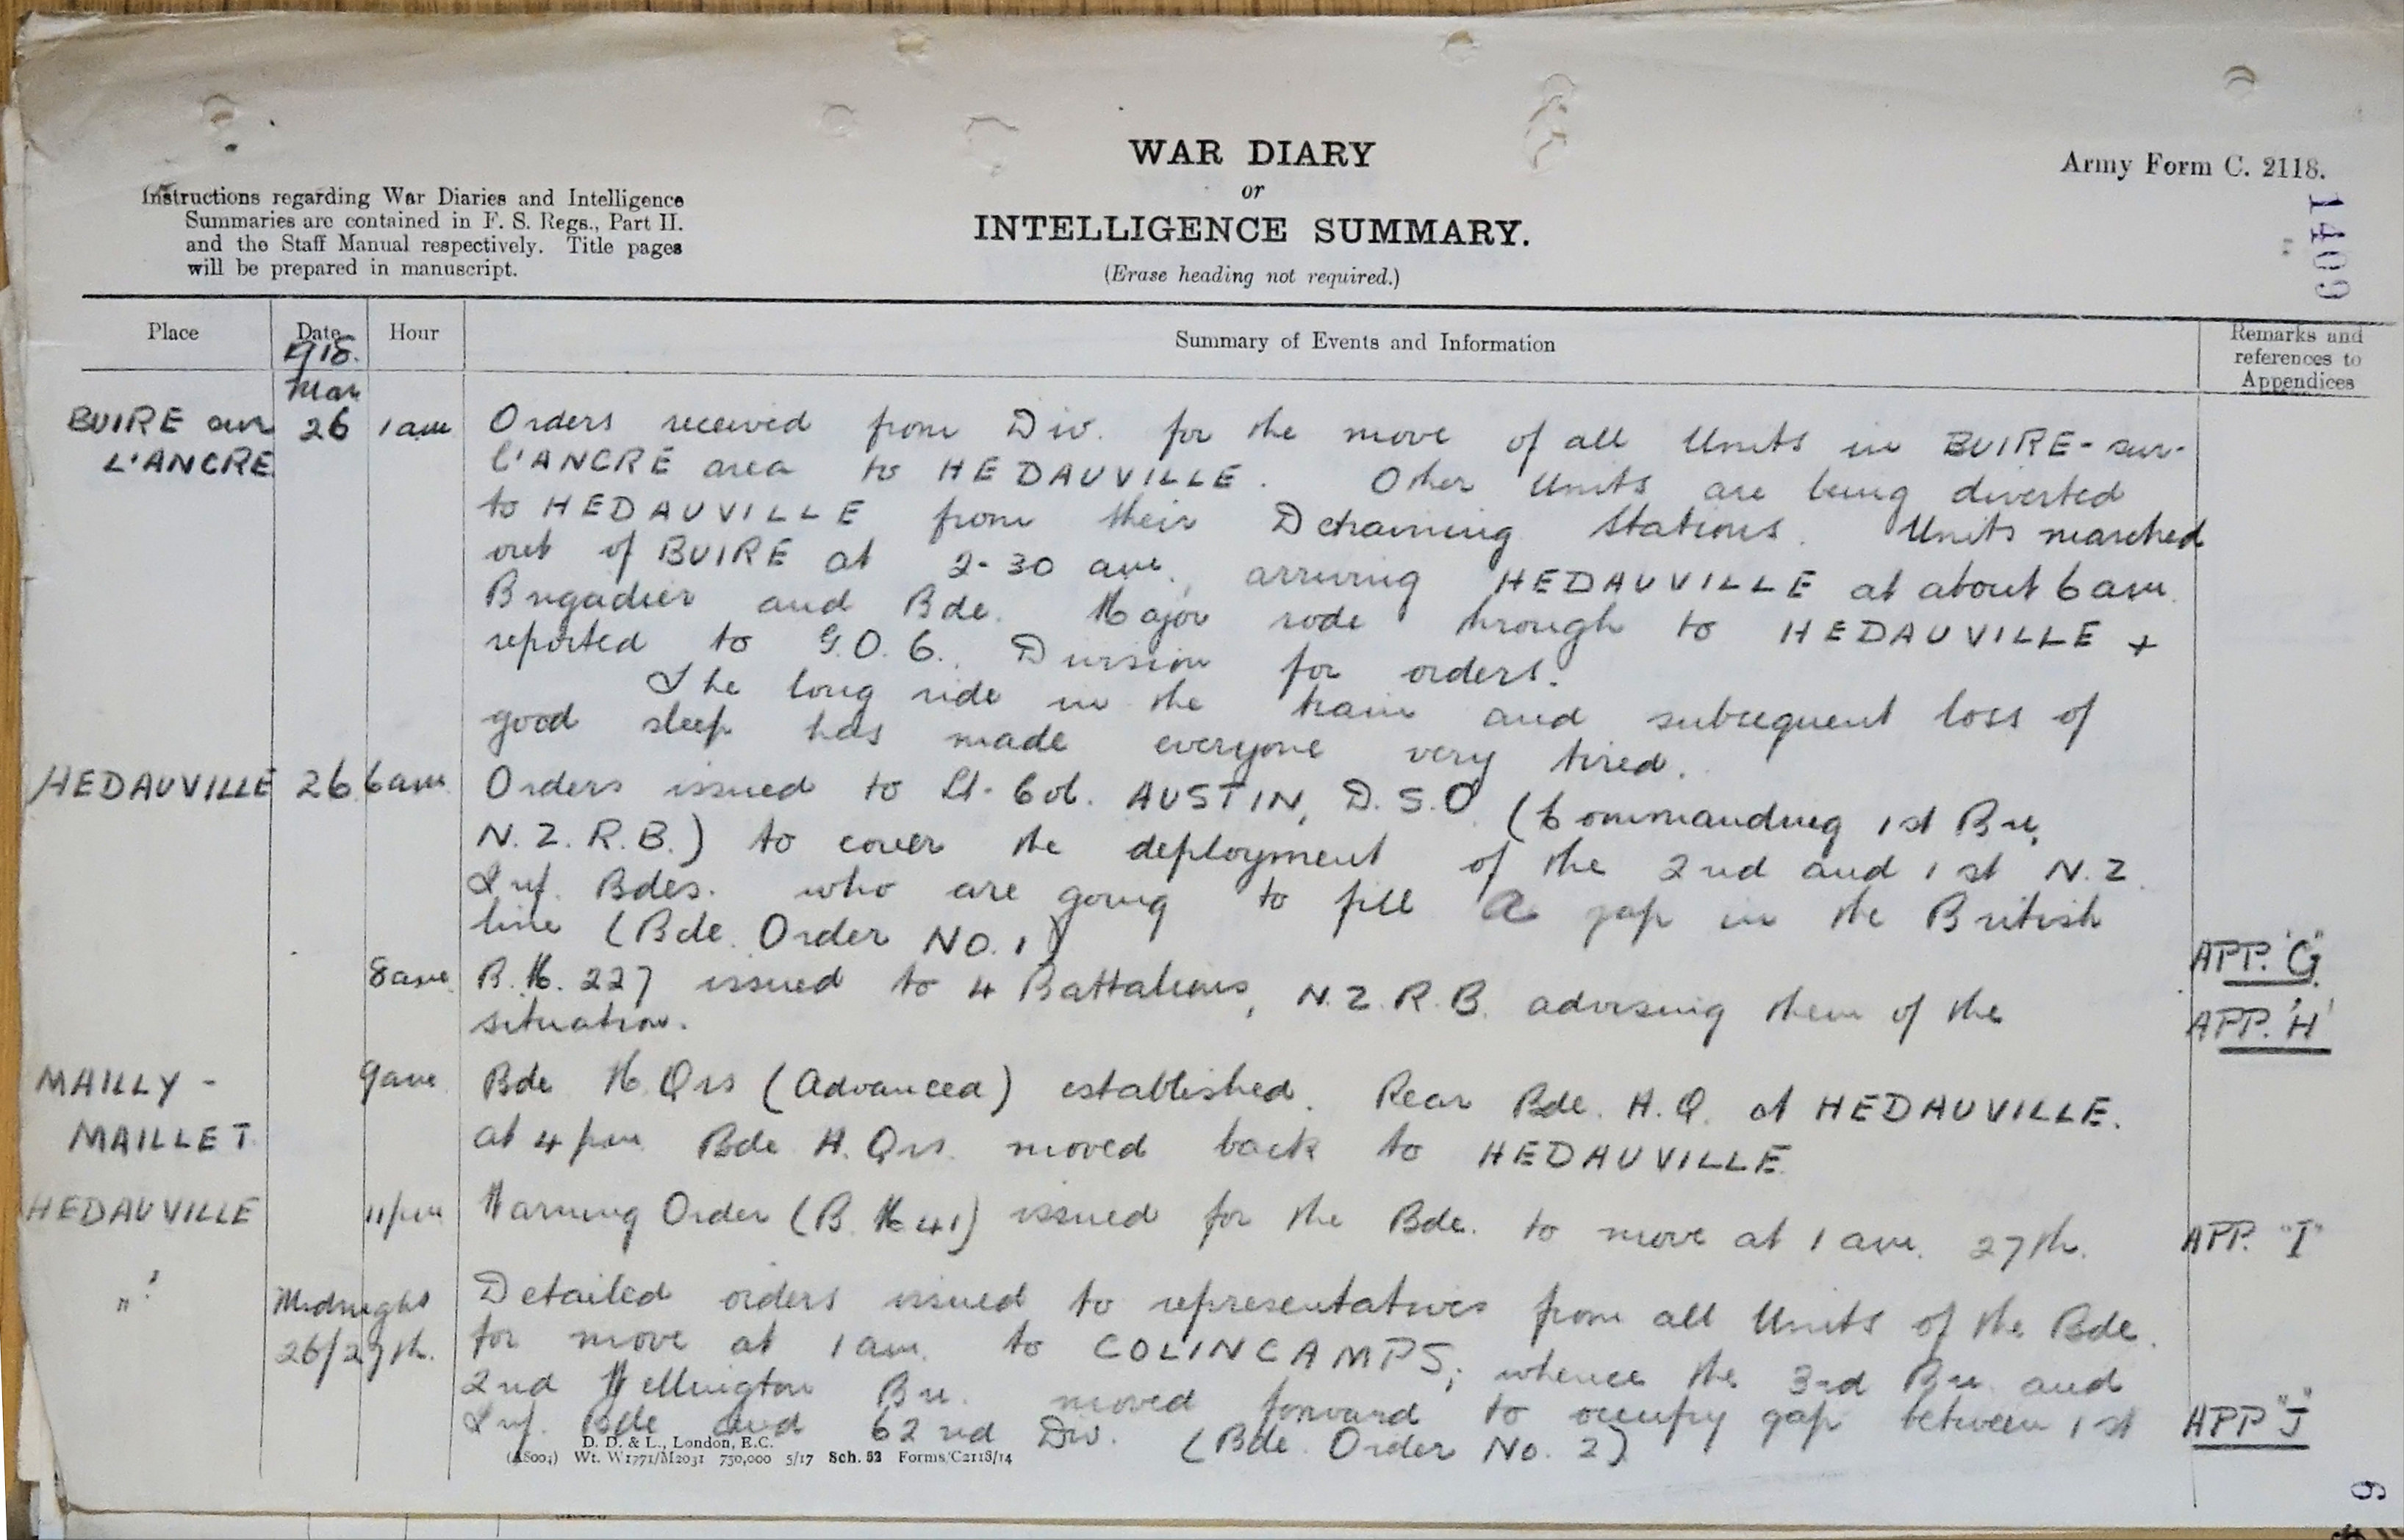 WAR DIARY
or
INTELLIGENCE SUMMARY.
(Erase heading not required.)
Army Form C. 2118.
1409
Instructions regarding War Diaries and Intelligence
Summaries are contained in F. S. Regs., Part II.
and the Staff Manual respectively. Title pages
will be prepared in manuscript.
Place Date Hour Summary of Events and Information Remarks and
references to
Appendices
1918.
Mar
BUIRE sur 26 1 am Orders received from Div. for the move of all Units in BUIRE-sur-
L'ANCRE l'ANCRE area to HEDAUVILLE. Other Units are being diverted
to HEDAUVILLE from their Detraining Stations. Units marched
out of BUIRE at 2-30 am., arriving HEDAUVILLE at about 6 am.
Brigadier and Bde. Major rode through to HEDAUVILLE +
reported to G.O.C. Division for orders.
The long ride in the train and subsequent loss of
good sleep has made everyone very tired.
HEDAUVILLE 26 6 am Orders issued to Lt-Col. AUSTIN, D.S.O. (Commanding 1st Bn.
N.Z.R.B.) to cover the deployment of the 2nd and 1st N.Z.
Inf. Bdes. who are going to fill a gap in the British
line (Bde. Order No. 1) APP. "G"
8 am B.M. 227 issued to 4 Battalions, N.Z.R.B. advising them of the APP. 'H'
situation.
MAILLY - 9 am Bde H.Qrs (Advanced) established. Rear Bde. H.Q. at HEDAUVILLE.
MAILLET at 4 pm Bde H.Qrs. moved back to HEDAUVILLE.
HEDAUVILLE 11 pm Warning Order (B.M. 41) issued for the Bde. to move at 1 am. 27th. APP. "I"
" Midnight Detailed orders issued to representatives from all Units of the Bde.
26/27th. for move at 1 am. to COLINCAMPS, whence the 3rd Bn. and
2nd Wellington Bn. moved forward to occupy gap between 1st APP "J"
Inf. Bde and 62nd Div. (Bde. Order No. 2)
D. D. & L., London, E.C.
(A8004) Wt. W1771/M2031 750,000 5/17 Sch. 52 Forms/C2118/14
9